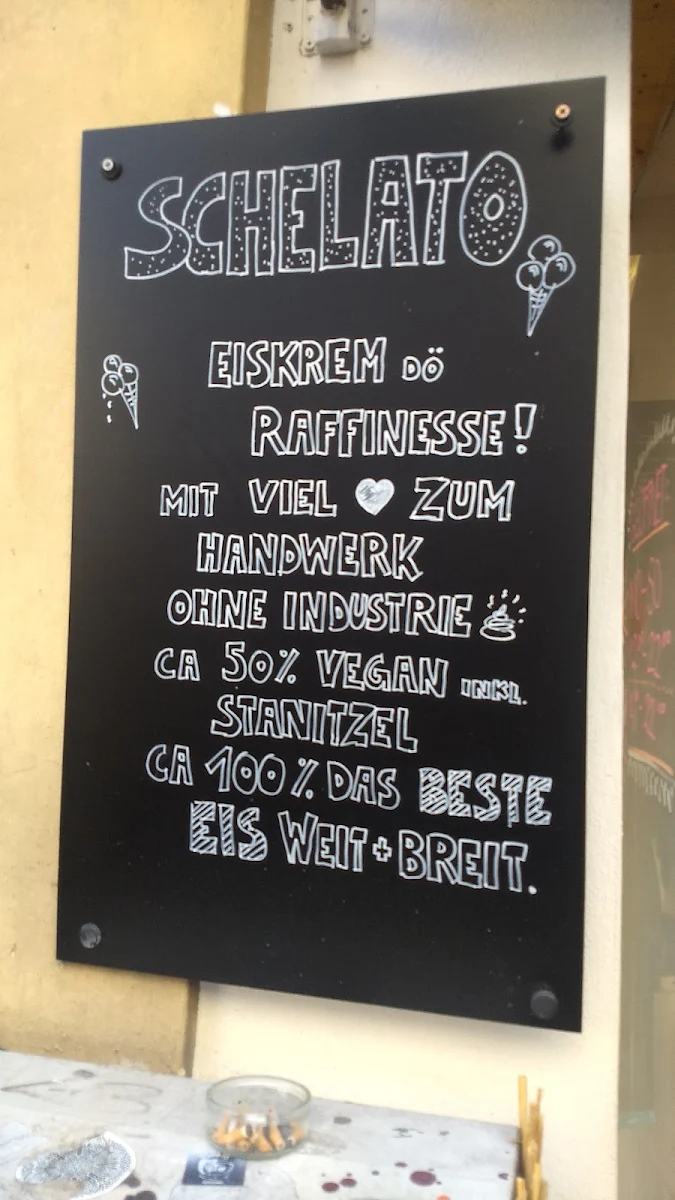 SCHELATO
EISKREM DÖ
RAFFINESSE!
MIT VIEL ♥ ZUM
HANDWERK
OHNE INDUSTRIE 💩
CA 50% VEGAN INKL.
STANITZEL
CA 100% DAS BESTE
EIS WEIT + BREIT.